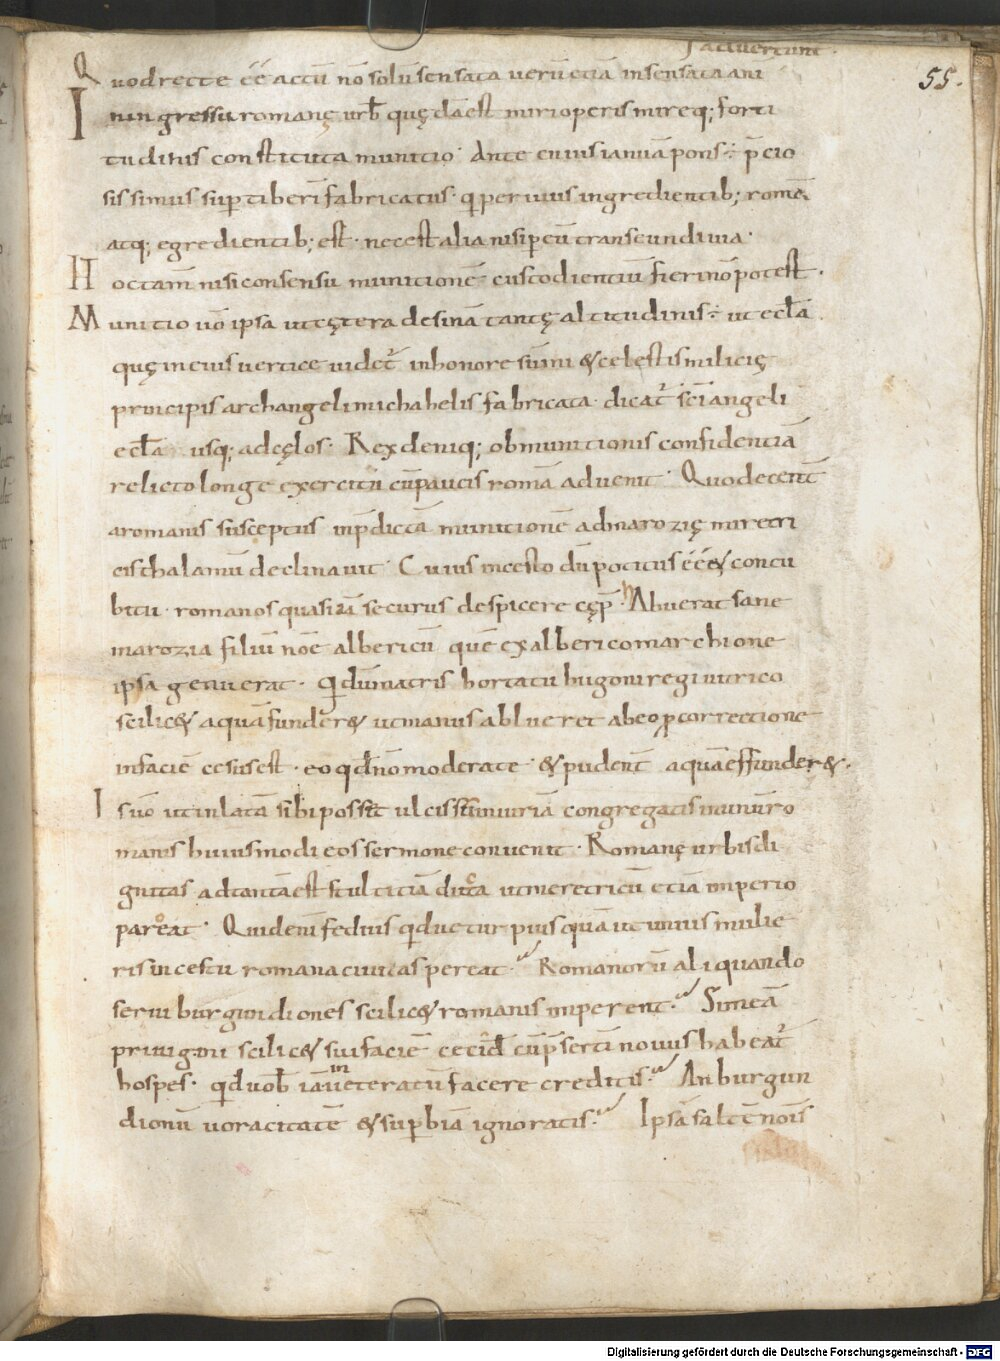 aduertunt.
55.
Quod recte ee᷎ actū nō solū sensata uerū etiā insensata ani
In ingressu romanę urb̄ quędā est miri operis mireq; forti
tudinis constituta munitio. Ante cuius ianuā pons p̄cio
sissimus sup tiberī fabricatus. qi peruius ingredientib; romā
atq; egredientib; est. nec est alia nisi p eū transeundi uia.
Hoc tam̄ nisi consensu munitionē custodientiū fieri nō potest.
Munitio u͞o ipsa ut cętera desinā tantę altitudinis ut eccl̄a
quę in eius uertice uidet᷑ in honore sūmi & celestis milicię
principis archangeli michahelis fabricata dicat᷑ sc̄i angeli
eccl̄a usq; ad cęlos. Rex deniq; ob munitionis confidentiā
relicto longe exercitu cū paucis romā aduenit. Quo decent̄
a romanis susceptus in p̄dictā munitionē ad marozię meretri
cis thalamū declinauit. Cuius incesto dū potitus ee᷎& concu
bitu romanos quasi iā securus despicere cęp̄. Habuerat sane
marozia filiū noē albericū quē ex alberico marchione
ipsa genuerat. qi dū matris hortatu hugoni regi uitrico
scilic& aquā funder& ut manus ablueret ab eo p correctione
in faciē cesus est. eo qd̄ nō moderate & pudent̄ aquā effunder&.
Is u͞o ut inlatā sibi possit ulcisci iniuriā congregatis in unū ro
manis huiusmodi eos sermone conuenit. Romanę urbis di
gnitas ad tantā est stultitiā ducta ut meretricū etiā imperio
pareat. Quid enī fedius qid ue turpius quā ut unius mulie
ris incestu romana ciuitas pereat. Romanorū aliquando
serui burgundiones scilic& romanis imperent. Si meā
priuigni scilic& sui faciē cecid̄ cū p̄sertī nouus habeat᷑
hospes. qid uob̄ iā inueteratū facere creditis. An burgun
dionū uoracitatē & supbiā ignoratis. Ipsā saltē nōis
Digitalisierung gefördert durch die Deutsche Forschungsgemeinschaft - DFG